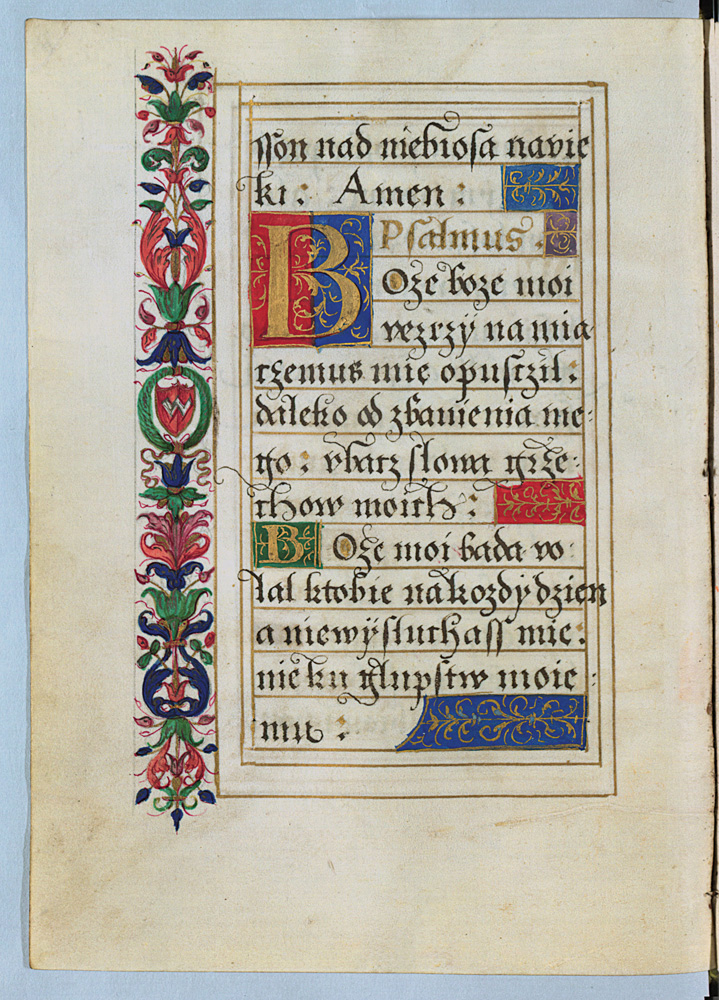 sson nad niebiosa navie
ki: Amen:
Psalmus.
BOże boże moi
vezrzÿ na mia
czemus mie opusczil:
daleko od zbavienia me-
go: vbacz slowa grze-
chow moich:
BOże moi bada vo
lal ktobie nakozdÿ dzien
a niewÿsluchass mie:
nie ku glupstw moie-
mu: